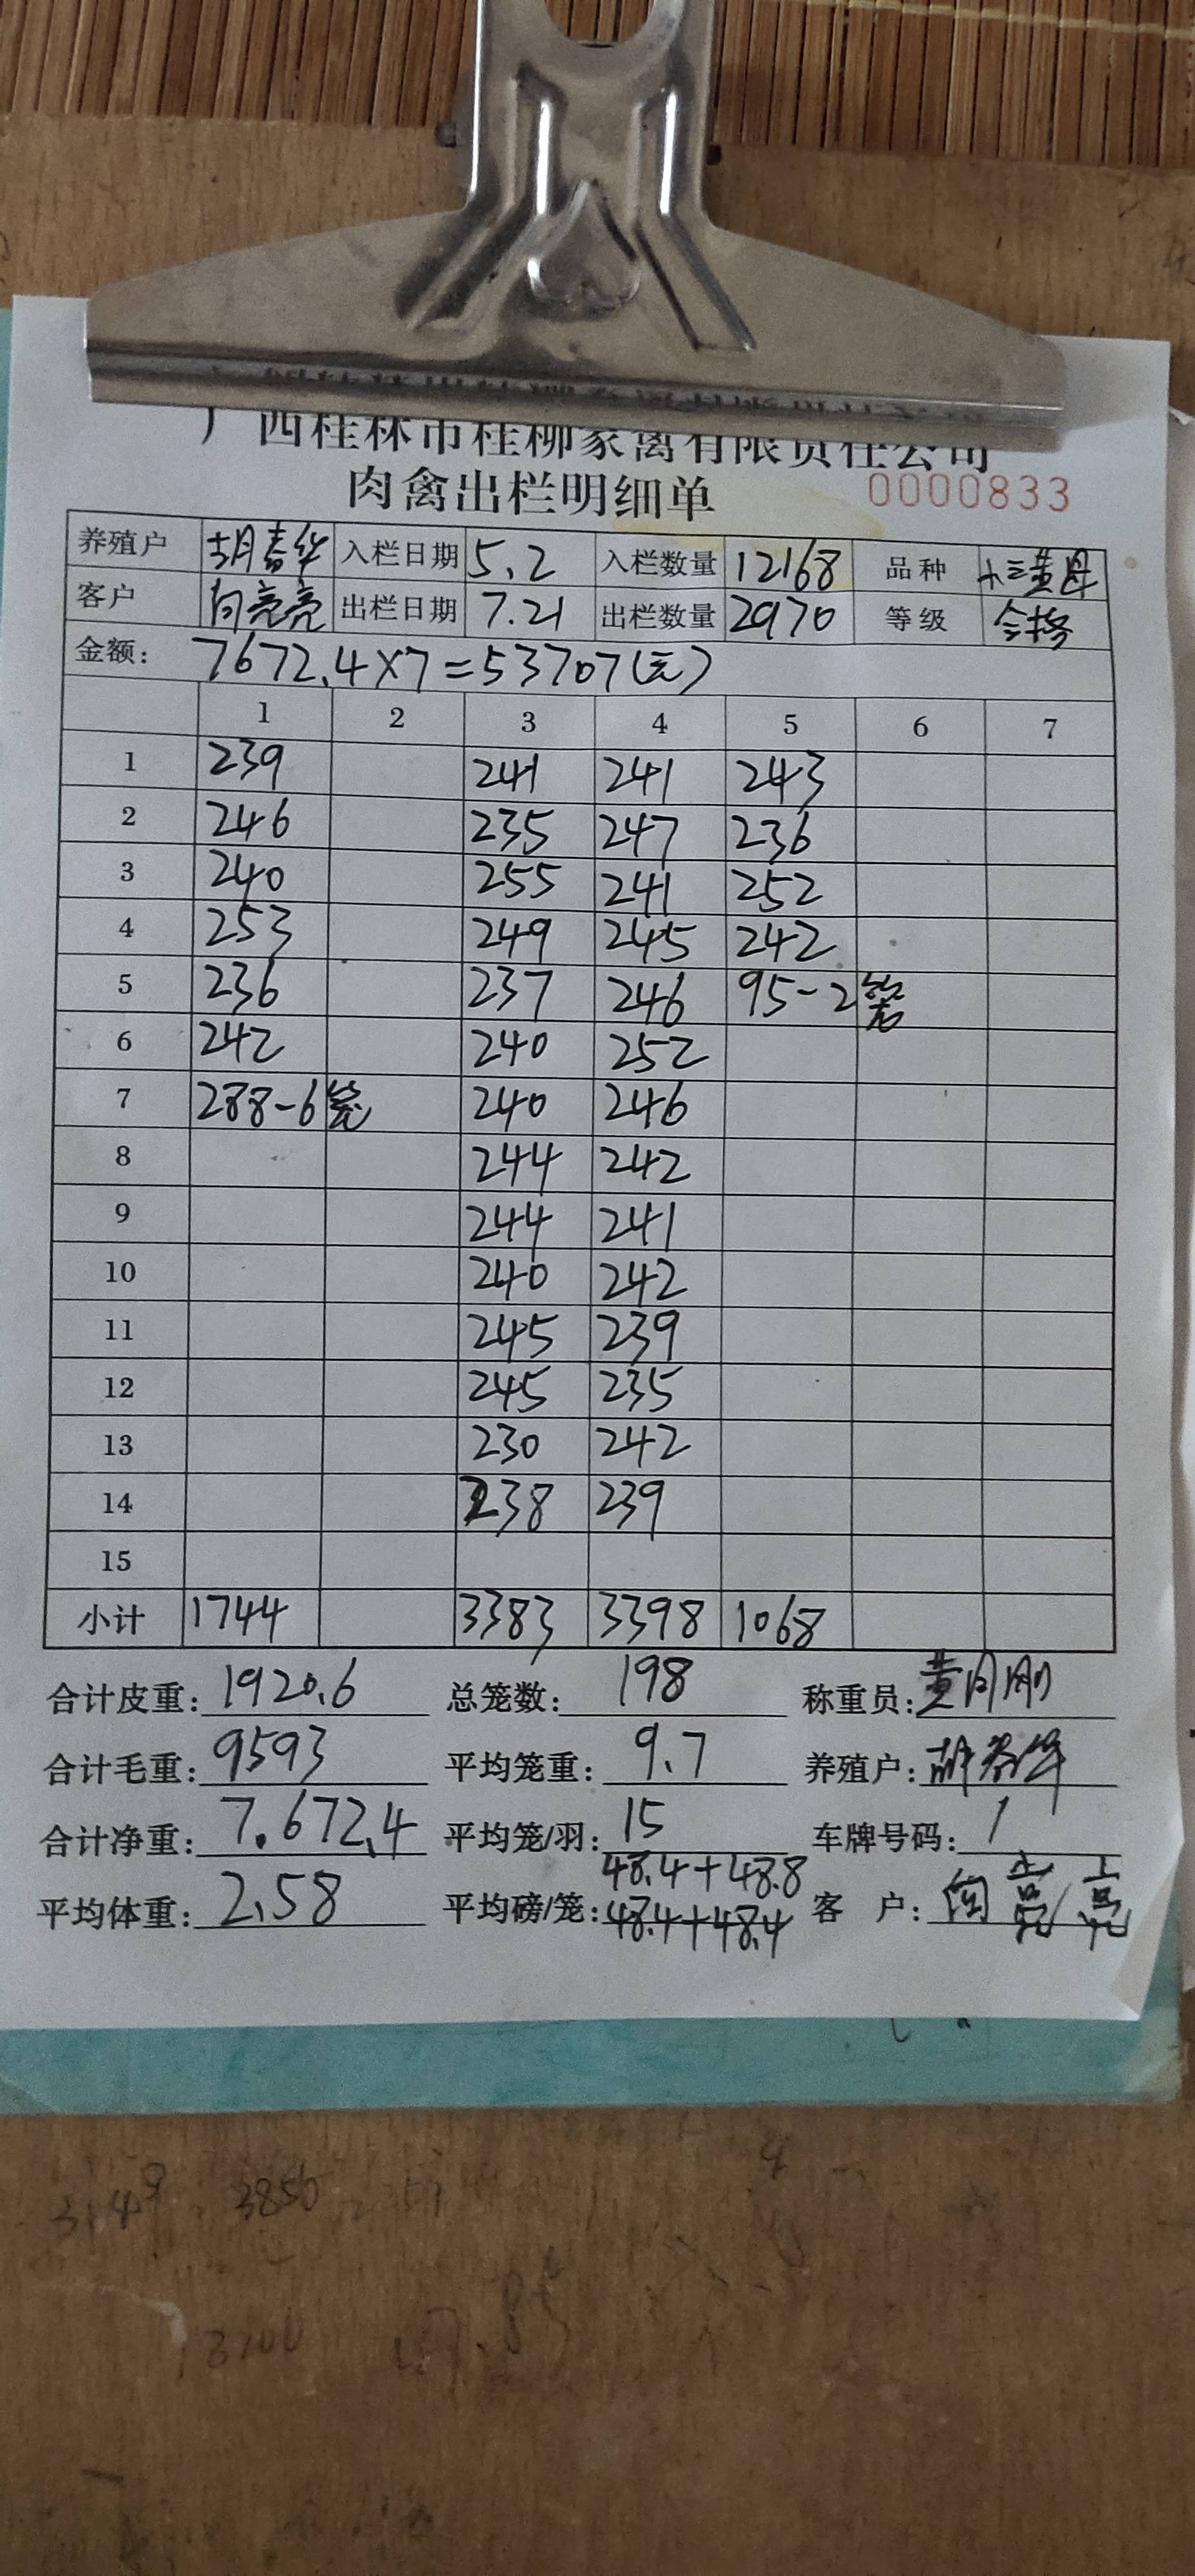 广西桂林市桂柳家禽有限责任公司
肉禽出栏明细单 0000833
养殖户 胡春华 入栏日期 5.2 入栏数量 12168 品种 小三黄母
客户 向亮亮 出栏日期 7.21 出栏数量 2970 等级 合格
金额: 7672.4×7=53707(元)
1 2 3 4 5 6 7
1 239 241 241 243
2 246 235 247 236
3 240 255 241 252
4 253 249 245 242
5 236 237 246 95-2笼
6 242 240 252
7 288-6笼 240 246
8 244 242
9 244 241
10 240 242
11 245 239
12 245 235
13 230 242
14 238 239
15
小计 1744 3383 3398 1068
合计皮重: 1920.6 总笼数: 198 称重员: 黄月刚
合计毛重: 9593 平均笼重: 9.7 养殖户: 胡春华
合计净重: 7.672.4 平均笼/羽: 15 车牌号码: /
48.4+48.8
平均体重: 2.58 平均磅/笼: 48.4+48.4 客 户: 向亮亮
3850